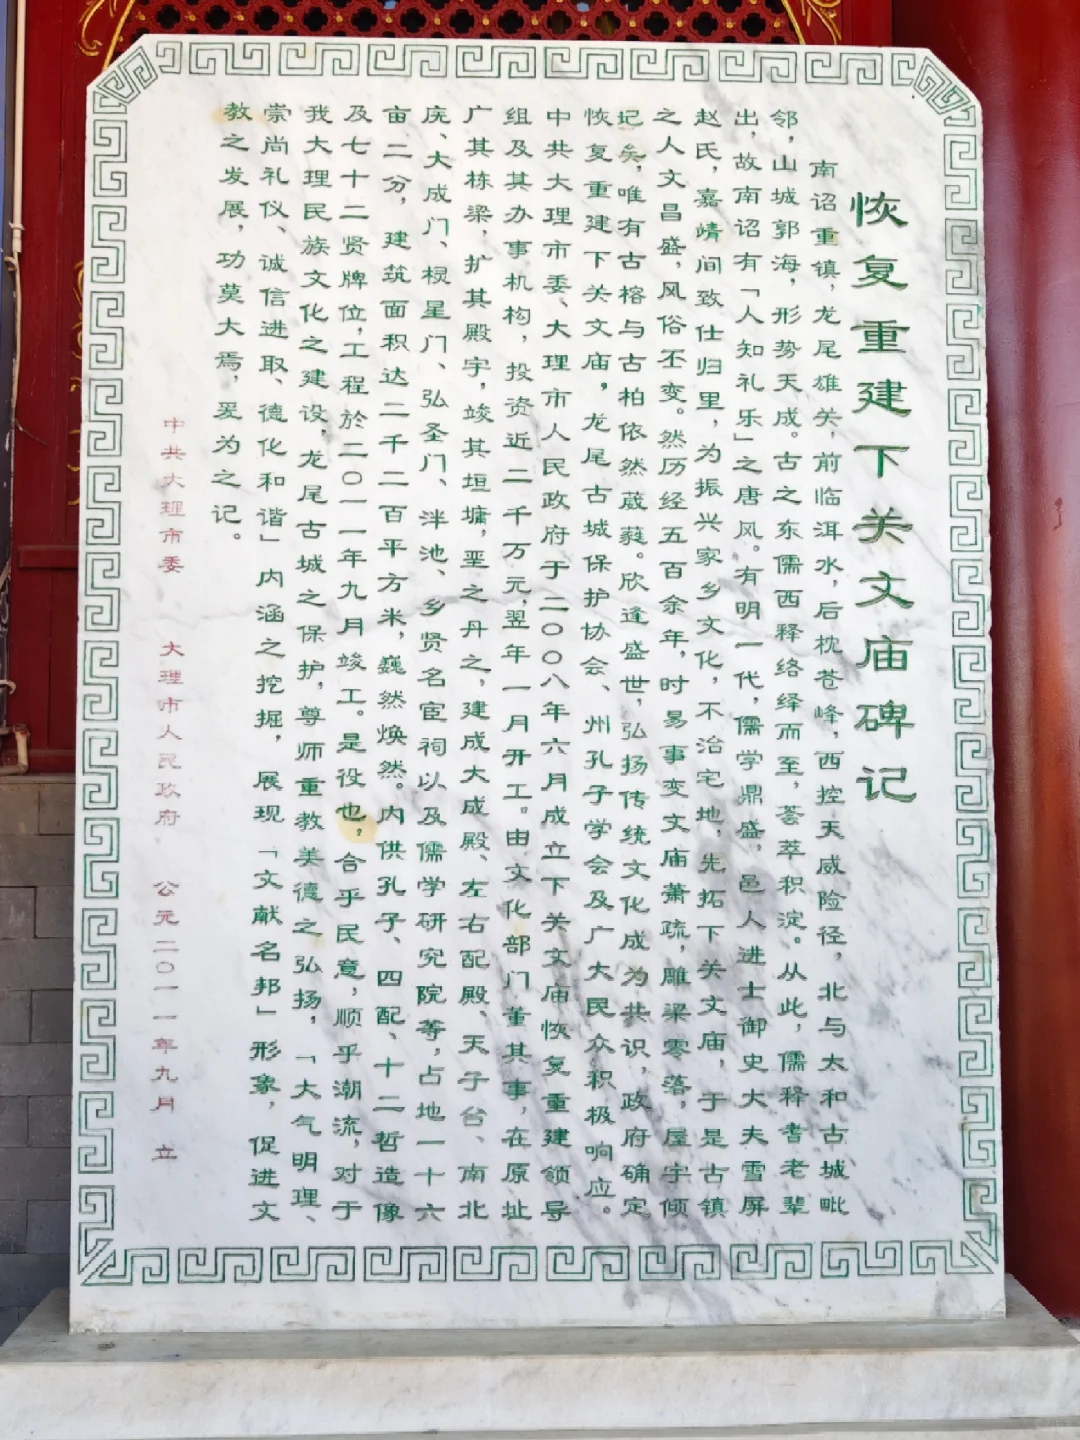 恢复重建下关文庙碑记
南诏重镇，龙尾雄关，前临洱水，后枕苍峰，西控天威险径，北与太和古城毗
邻，山城郭海，形势天成。古之东儒西释络绎而至，荟萃积淀。从此，儒释耆老辈
出，故南诏有「人知礼乐」之唐风。有明一代，儒学鼎盛，邑人进士御史大夫雪屏
赵氏，嘉靖间致仕归里，为振兴家乡文化，不治宅地，先拓下关文庙，于是古镇
之人文昌盛，风俗丕变。然历经五百余年，时易事变文庙萧疏，雕梁零落，屋宇倾
圮矣，唯有古榕与古柏依然葳蕤。欣逢盛世，弘扬传统文化成为共识，政府确定
恢复重建下关文庙，龙尾古城保护协会、州孔子学会及广大民众积极响应。
中共大理市委、大理市人民政府于二〇〇八年六月成立下关文庙恢复重建领导
组及其办事机构，投资近二千万元，翌年一月开工。由文化部门董其事，在原址
广其栋梁，扩其殿宇，竣其垣墉，垩之丹之，建成大成殿、左右配殿、天子台、南北
庑、大成门、棂星门、弘圣门、泮池、乡贤名宦祠以及儒学研究院等，占地一十六
亩二分，建筑面积达二千二百平方米，巍然焕然。内供孔子、四配、十二哲造像
及七十二贤牌位，工程於二〇一一年九月竣工。是役也，合乎民意，顺乎潮流，对于
我大理民族文化之建设，龙尾古城之保护，尊师重教美德之弘扬，「大气明理、
崇尚礼仪、诚信进取、德化和谐」内涵之挖掘，展现「文献名邦」形象，促进文
教之发展，功莫大焉，爰为之记。
中共大理市委 大理市人民政府 公元二〇一一年九月 立